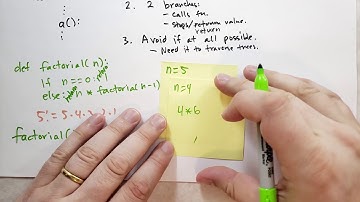 a():
2. 2 branches:
- Calls fn.
- Stops/returns value.
return
3. Avoid if at all possible.
- Need it to traverse trees.
def factorial(n):
If n==0:
else: n * factorial(n-1)
5! = 5.4.3.2.1
factorial(
n=5
n=4
4*6